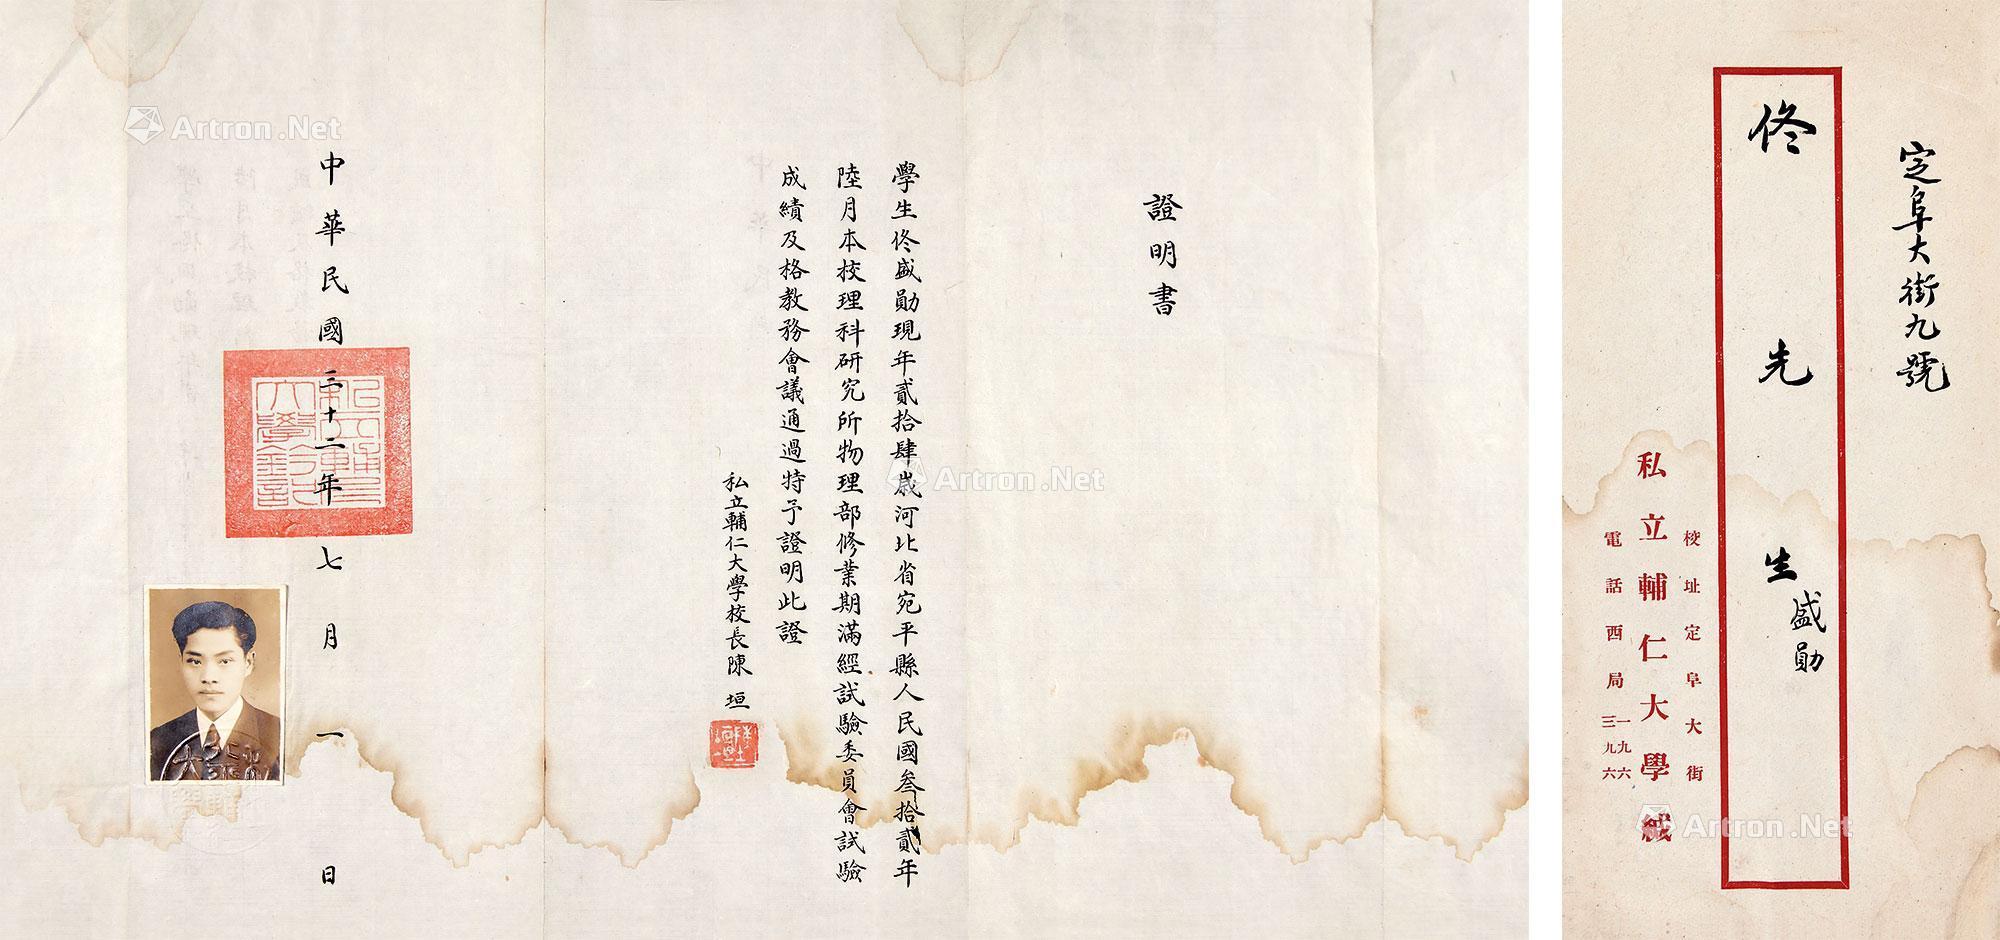 證明書
學生佟盛勛現年貳拾肆歲河北省宛平縣人民國叁拾貳年
陸月本校理科研究所物理部修業期滿經試驗委員會試驗
成績及格教務會議通過特予證明此證
私立輔仁大學校長陳垣
中華民國三十二年七月一日
私立輔仁大學鈐記
定阜大街九號
佟先生盛勛
校址定阜大街
私立輔仁大學緘
電話西局一九六
三九六
Artron.Net
Artron.Net
Artron.Net